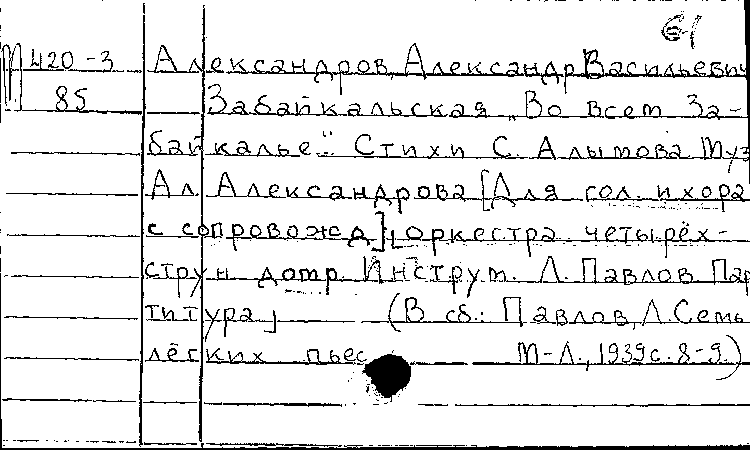 М 420-3 Александров, Александр Васильевич
85 Забайкальская „Во всем За-
байкалье". Стихи С. Алымова Муз
Ал. Александрова [Для гол. и хора
с сопровожд.], [оркестра четырёх-
струн домр. Инструм. Л. Павлов Пар
титура] (В сб.: Павлов, Л. Семь
лёгких пьес М-Л., 1939 с. 8-9.)